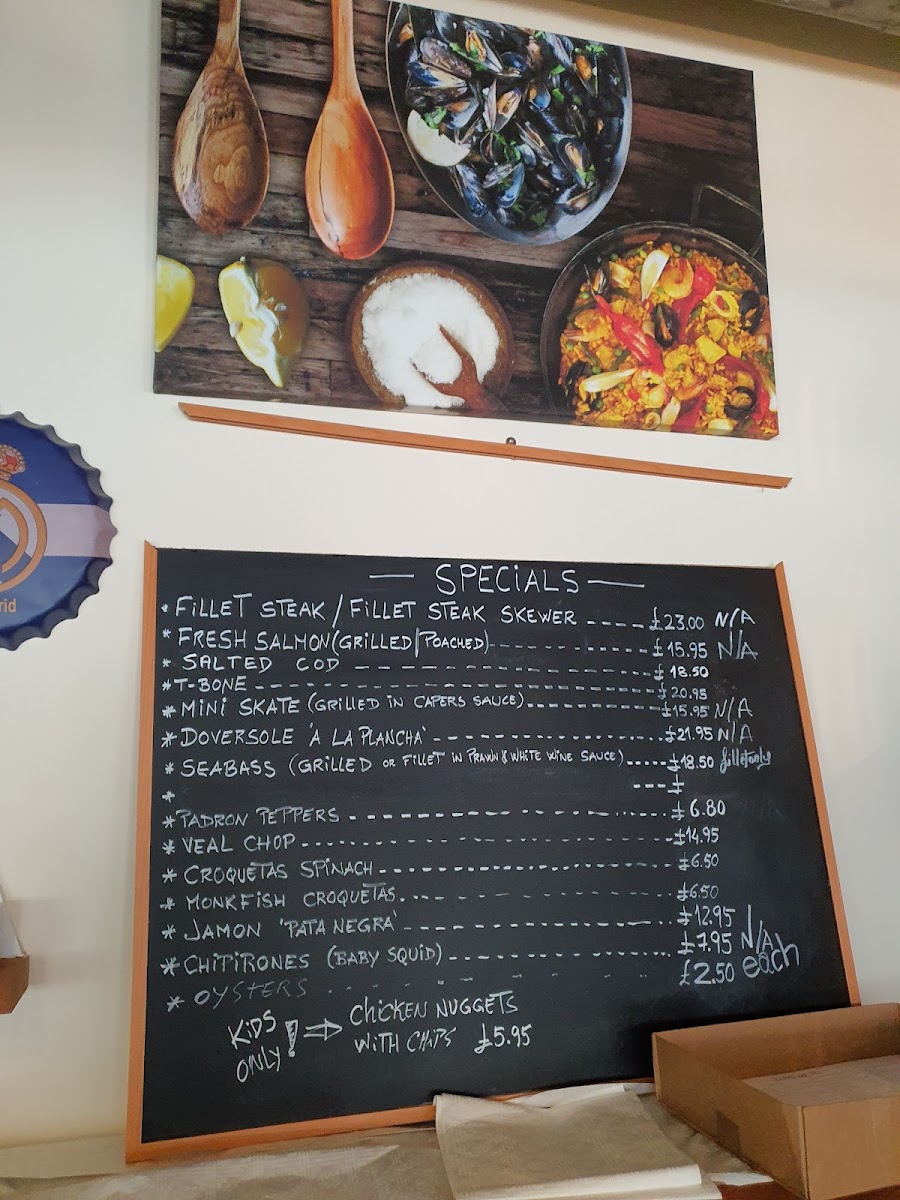 rid
— SPECIALS —
* FILLET STEAK / FILLET STEAK SKEWER ---- £23.00 N/A
* FRESH SALMON (GRILLED/POACHED) ---- £15.95 N/A
* SALTED COD ---- £18.50
* T-BONE ---- £20.95
* MINI SKATE (GRILLED IN CAPERS SAUCE) ---- £15.95 N/A
* DOVERSOLE 'A LA PLANCHA' ---- £21.95 N/A
* SEABASS (GRILLED OR FILLET IN PRAWN & WHITE WINE SAUCE) ---- £18.50 fillet only
* ---- £
* PADRON PEPPERS ---- £6.80
* VEAL CHOP ---- £14.95
* CROQUETAS SPINACH ---- £6.50
* MONKFISH CROQUETAS ---- £6.50
* JAMON 'PATA NEGRA' ---- £12.95
* CHITIRONES (BABY SQUID) ---- £7.95 N/A
* OYSTERS ---- £2.50 each
KIDS ONLY! ⇒ CHICKEN NUGGETS
WITH CHIPS £5.95